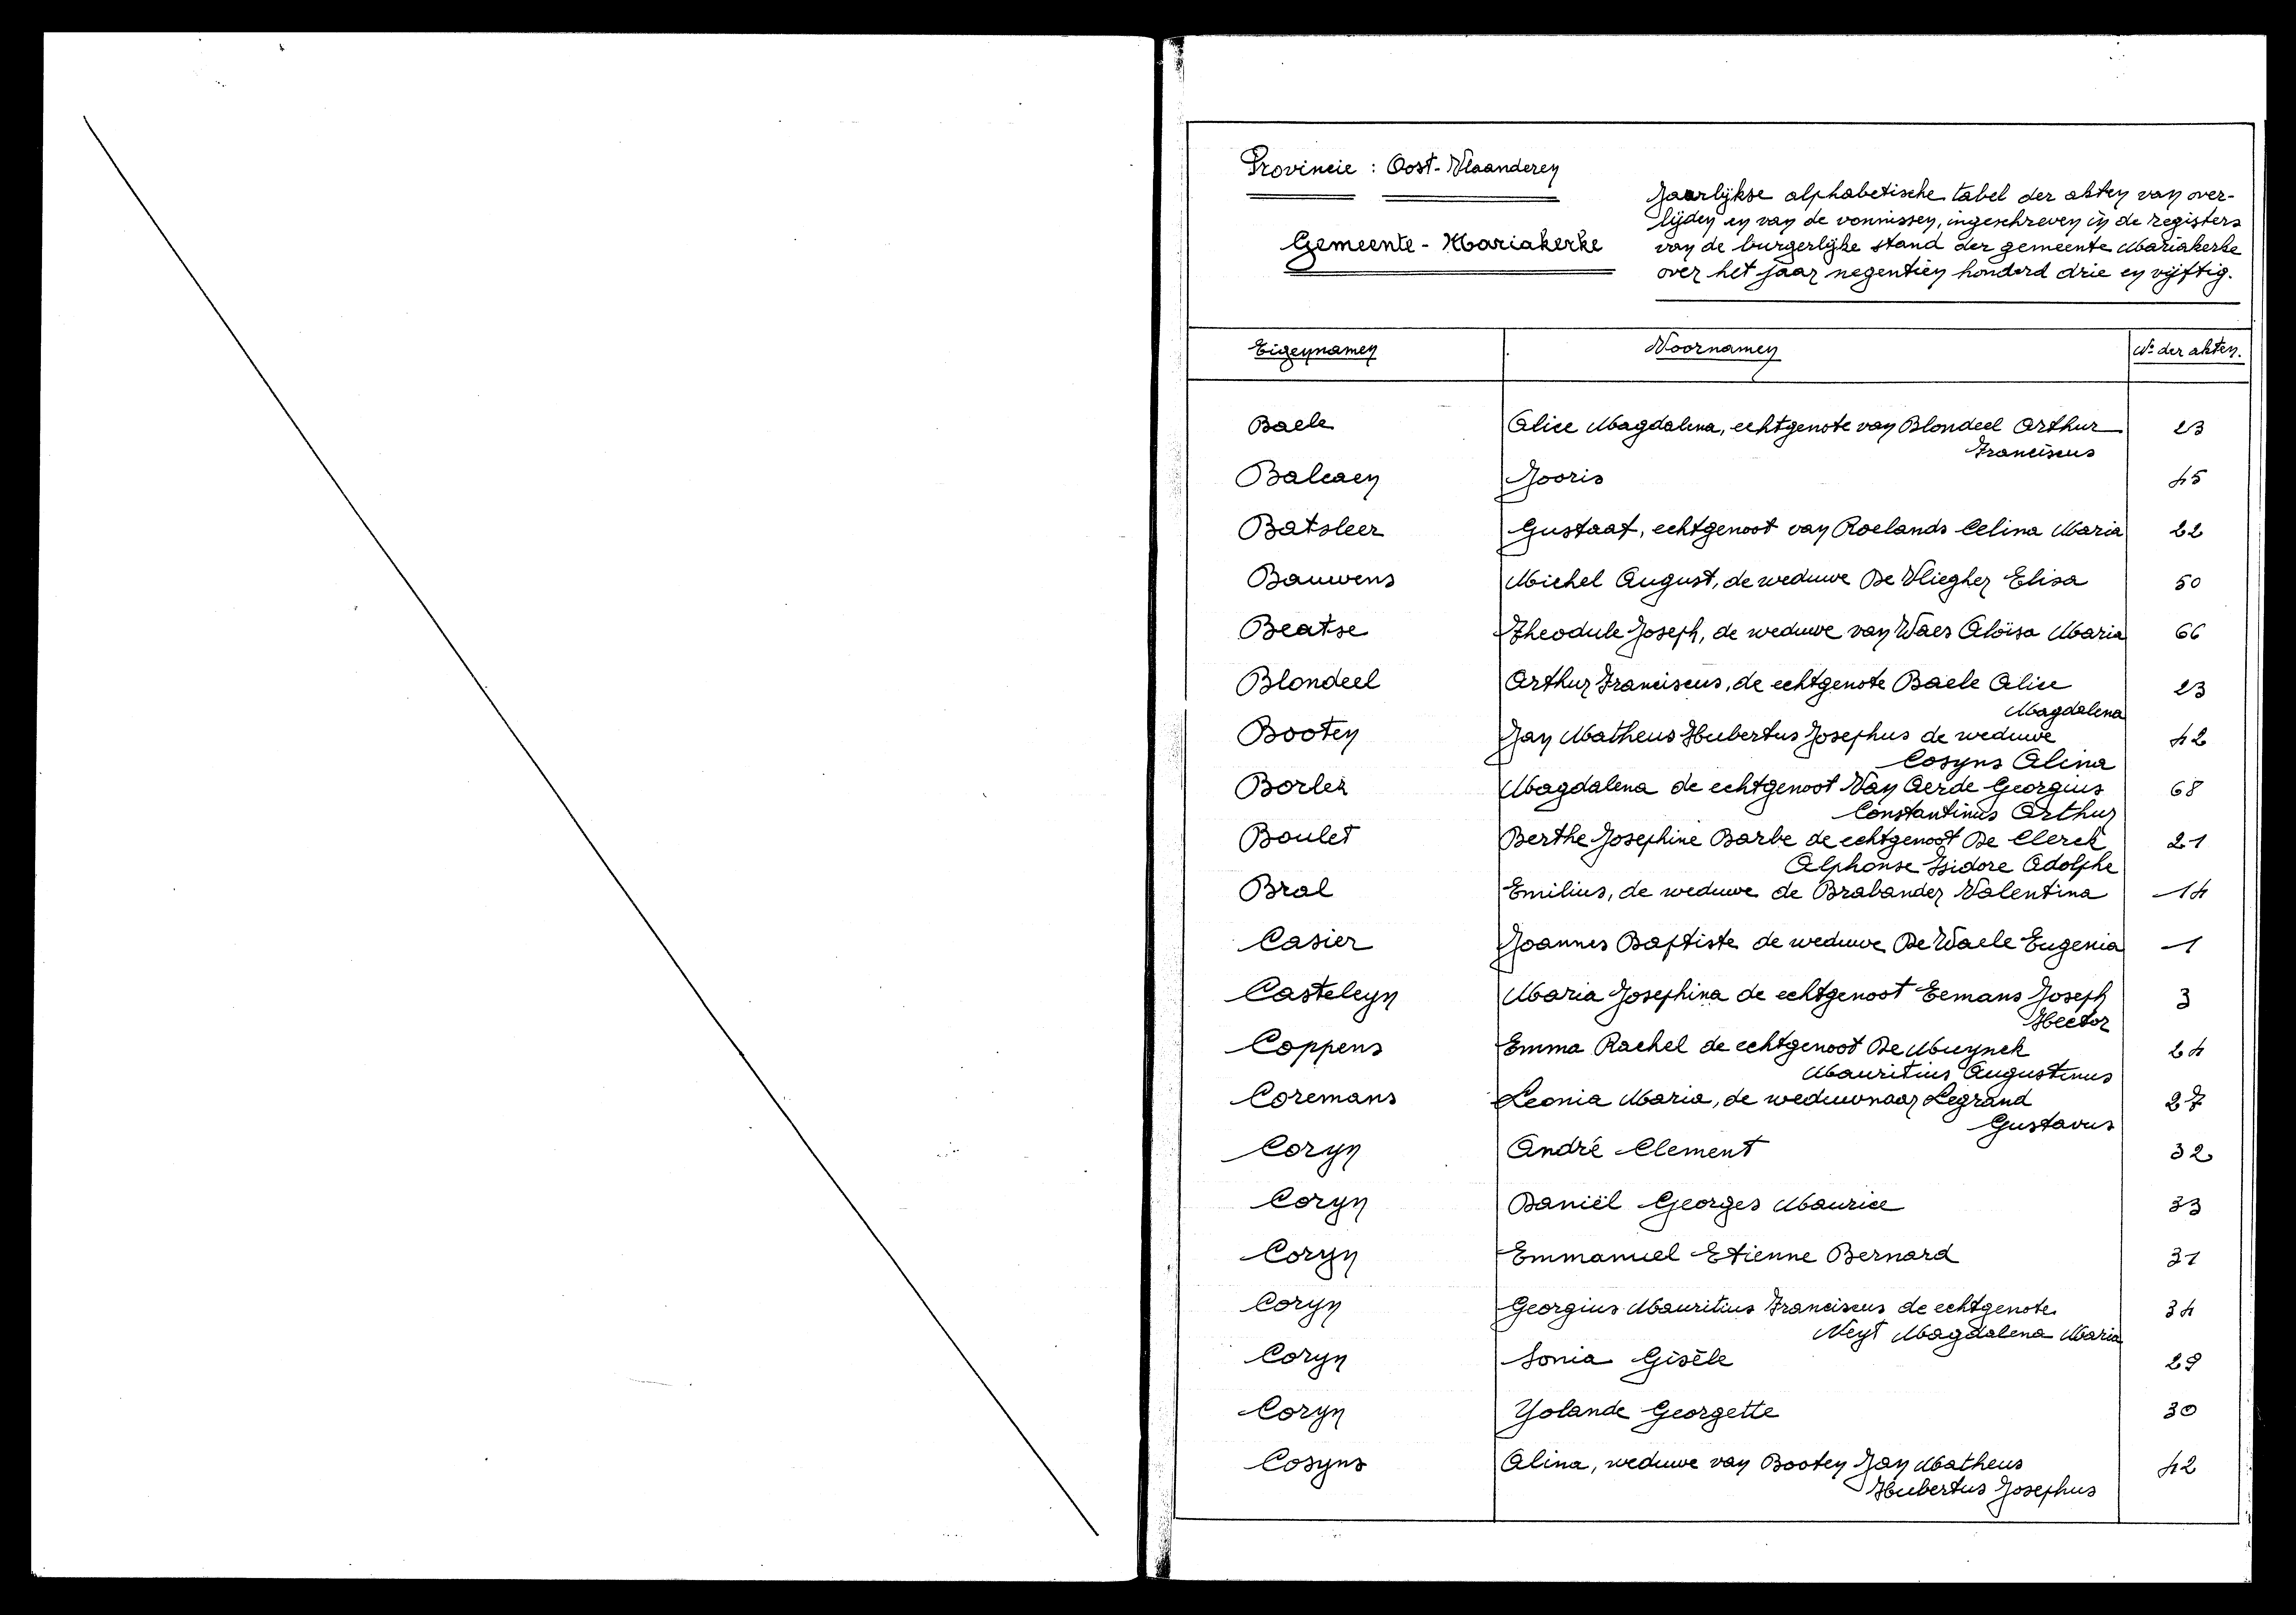 Provincie : Oost-Vlaanderen
Gemeente - Mariakerke
Jaarlijkse alphabetische tabel der akten van over-
lijden en van de vonnissen, ingeschreven in de registers
van de burgerlijke stand der gemeente Mariakerke
over het jaar negentien honderd drie en vijftig.
Eigennamen Voornamen Nr der akten.
Baele Alice Magdalena, echtgenote van Blondeel Arthur 23
Franciscus
Balcaen Jooris 45
Batsleer Gustaaf, echtgenoot van Roelands Celina Maria 22
Bauwens Michel August, de weduwe De Vliegher Elisa 50
Beatse Theodule Joseph, de weduwe van Waes Aloïsa Maria 66
Blondeel Arthur Franciscus, de echtgenote Baele Alice 23
Magdalena
Booten Jan Matheus Hubertus Josephus de weduwe 42
Cosyns Alina
Borler Magdalena de echtgenoot Van Aerde Georgius 68
Constantinus Arthur
Boulet Berthe Josephine Barbe de echtgenoot De Clerck 21
Alphonse Isidore Adolphe
Bral Emilius, de weduwe de Brabander Valentina 14
Casier Joannes Baptiste de weduwe De Waele Eugenia 1
Casteleyn Maria Josephina de echtgenoot Eemans Joseph 3
Hector
Coppens Emma Rachel de echtgenoot De Muynck 24
Mauritius Augustinus
Coremans Leonia Maria, de weduwnaar Legrand 27
Gustavus
Coryn André Clement 32
Coryn Daniël Georges Maurice 33
Coryn Emmanuel Etienne Bernard 31
Coryn Georgius Mauritius Franciscus de echtgenote 34
Neyt Magdalena Maria
Coryn Sonia Gisèle 29
Coryn Yolande Georgette 30
Cosyns Alina, weduwe van Booten Jan Matheus 42
Hubertus Josephus